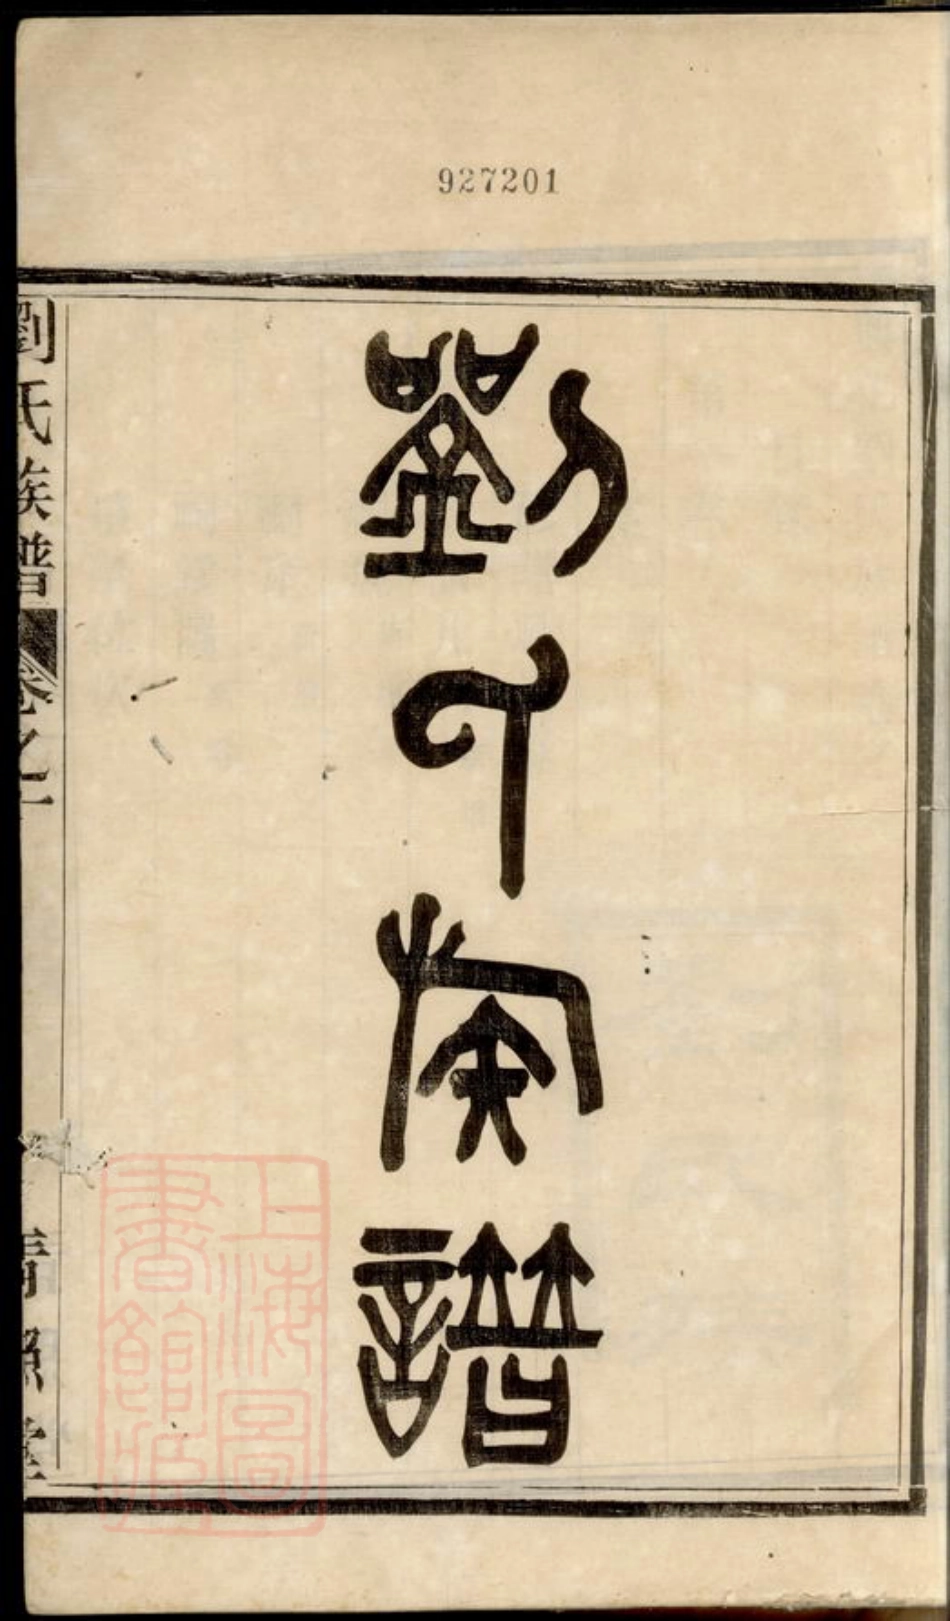 927201
劉氏族譜
劉氏族譜
卷之一
青照堂
上海圖
書館藏